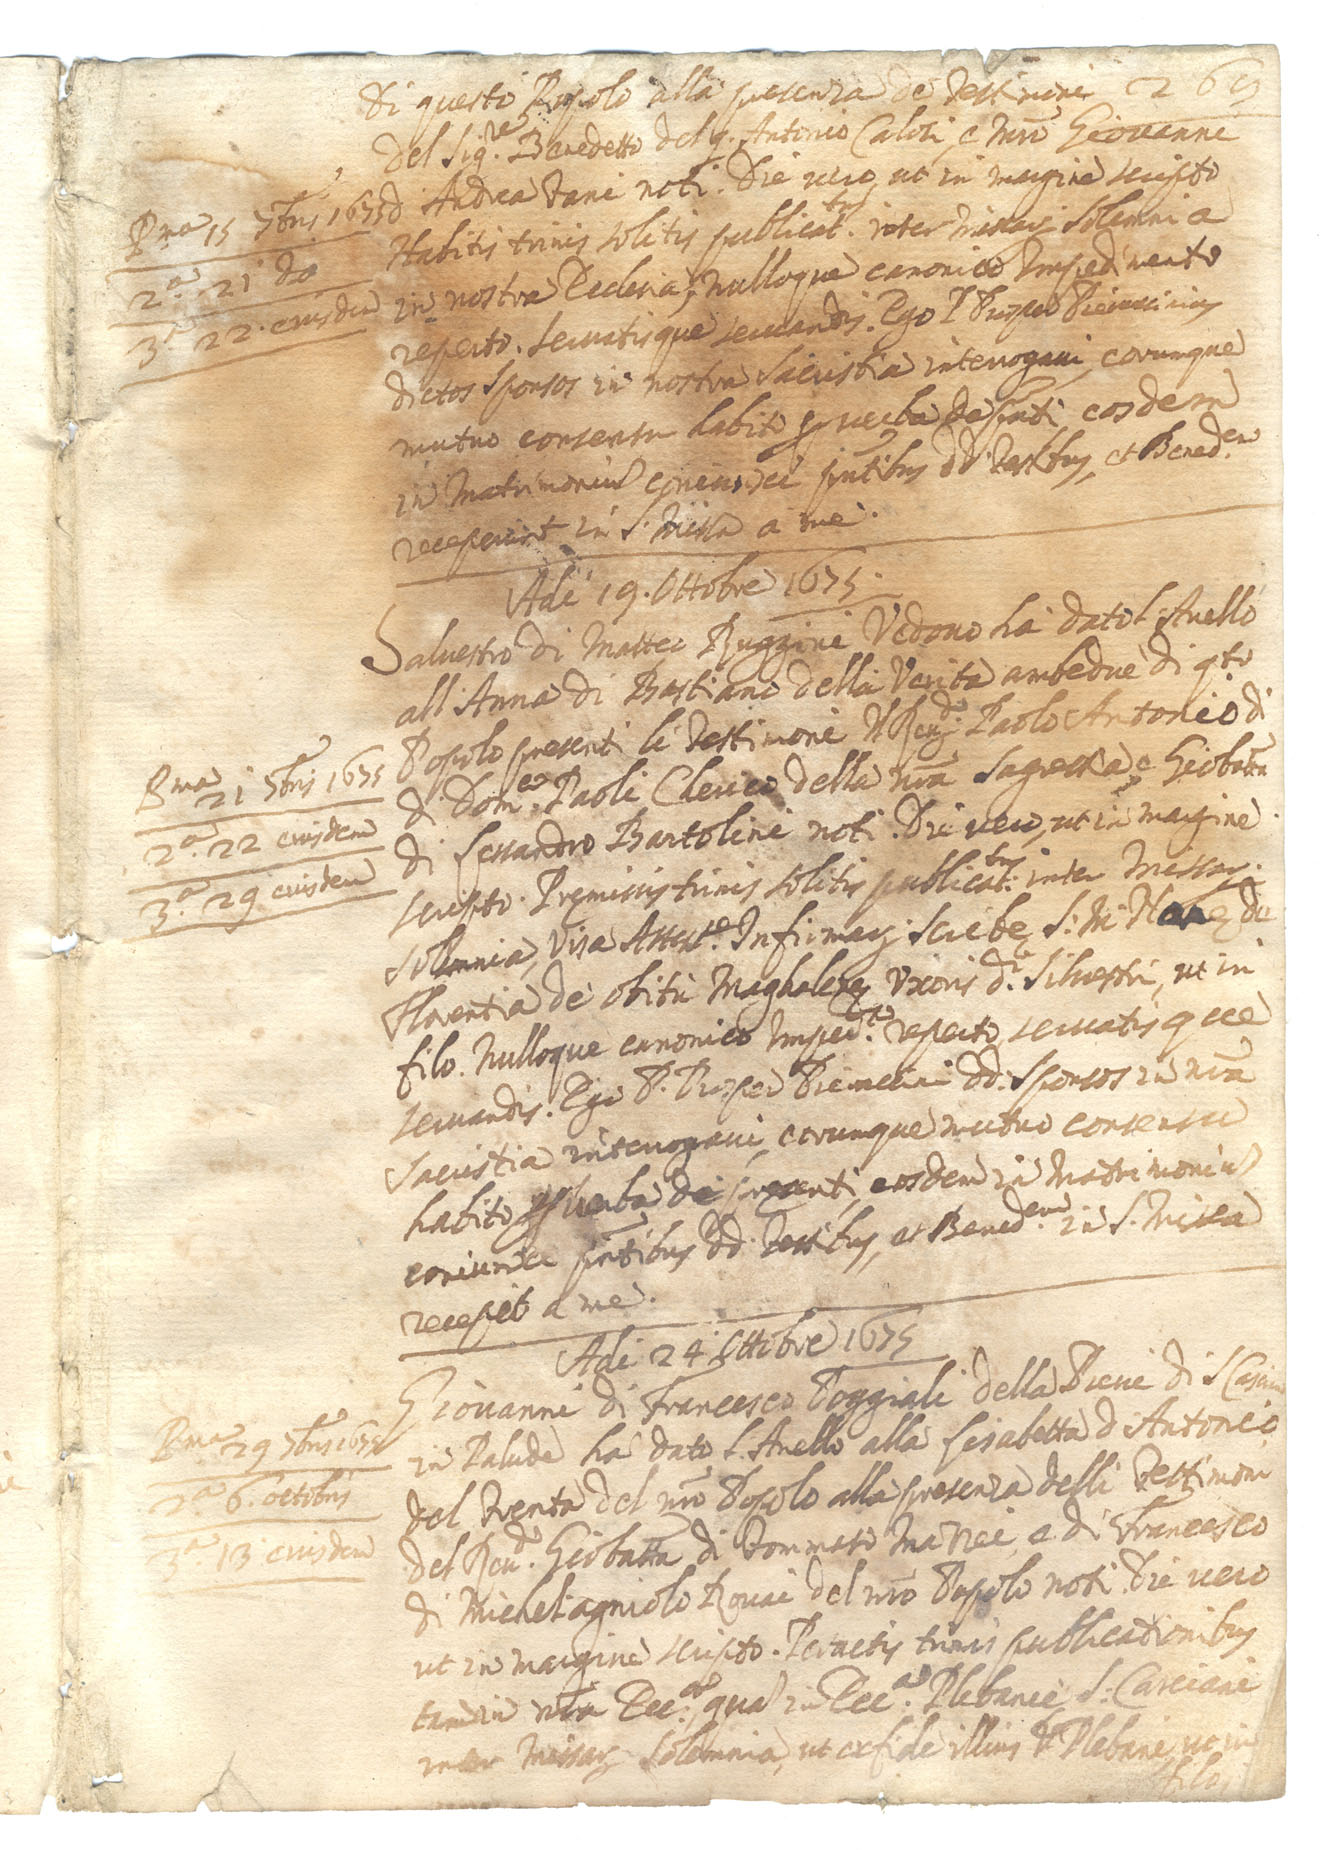 di questo Popolo alla presenza de Testimoni
del Sig.re Benedetto del q. Antonio e Mro Giovanni
d Andrea Vani noti. Die vero, ut in margine scripto
Pma 15 7bris 1675
2a 21 do
3a 22 eiusdem
Habitis trinis solitis publicat.bus inter Missarum solemnia
in nostra Ecclesia, nulloque canonico Impedimento
reperto. servatisque servandis. Ego P. Prosper
dictos Sponsos in nostra Sacristia interrogavi, eorumque
mutuo consensu habito p verba de pnti, eosdem
in Matrimoniu coniunxi pntibus dd. Testibus, et Bened.em
receperunt in S. Missa a me.
Adi 19. Ottobre 1675.
Salvestro di Matteo Ruggini Vedovo ha dato l'Anello
all'Anna di Bastiano della Verita ambedue di qto
Popolo presenti li Testimoni Il Rev.do Paolo Antonio di
Pma 21 7bris 1675
2a. 22 eiusdem
3a. 29 eiusdem
di Dom.co Paoli Clerico della nra Sagrestia e Giobatta
di Lessandro Bartolini noti. Die vero, ut in margine
scripto. Premissis trinis solitis publicat.bus inter Missarum
solemnia, Visa Attest.e Infirmarij Scribe S. M. Nove de
Florentia de obitu Maghalene Uxoris d.i Silvestri, ut in
filo. Nulloque canonico Imped.to reperto, servatisque
servandis. Ego P. Prosper dd. Sponsos in nra
Sacristia interrogavi, eorumque mutuo consensu
habito p verba de presenti, eosdem in Matrimoniu
coniunxi pntibus dd. Testibus, et Bened.em in S. Missa
recepit a me.
Adi 24 Ottobre 1675
Giovanni di Francesco Poggiali della Pieve di S Casciano
Pma 29 7bris 1675
2a 6. octobris
3a. 13 eiusdem
in Palude ha dato l'Anello alla Lisabetta d Antonio
del Trenta del nro Popolo alla presenza delli Testimoni
del Rev.do Giobatta di Tommaso Mazzei, e di Francesco
di Michelagniolo Rovai del nro Popolo noti. Die vero
ut in margine scripto. Peractis trinis publicationibus
tam in nra Ecc.a, qua in Ecc.a Plebanie S. Casciani
inter Missarum Solemnia, ut ex fide illius Plebani, ut in
filo